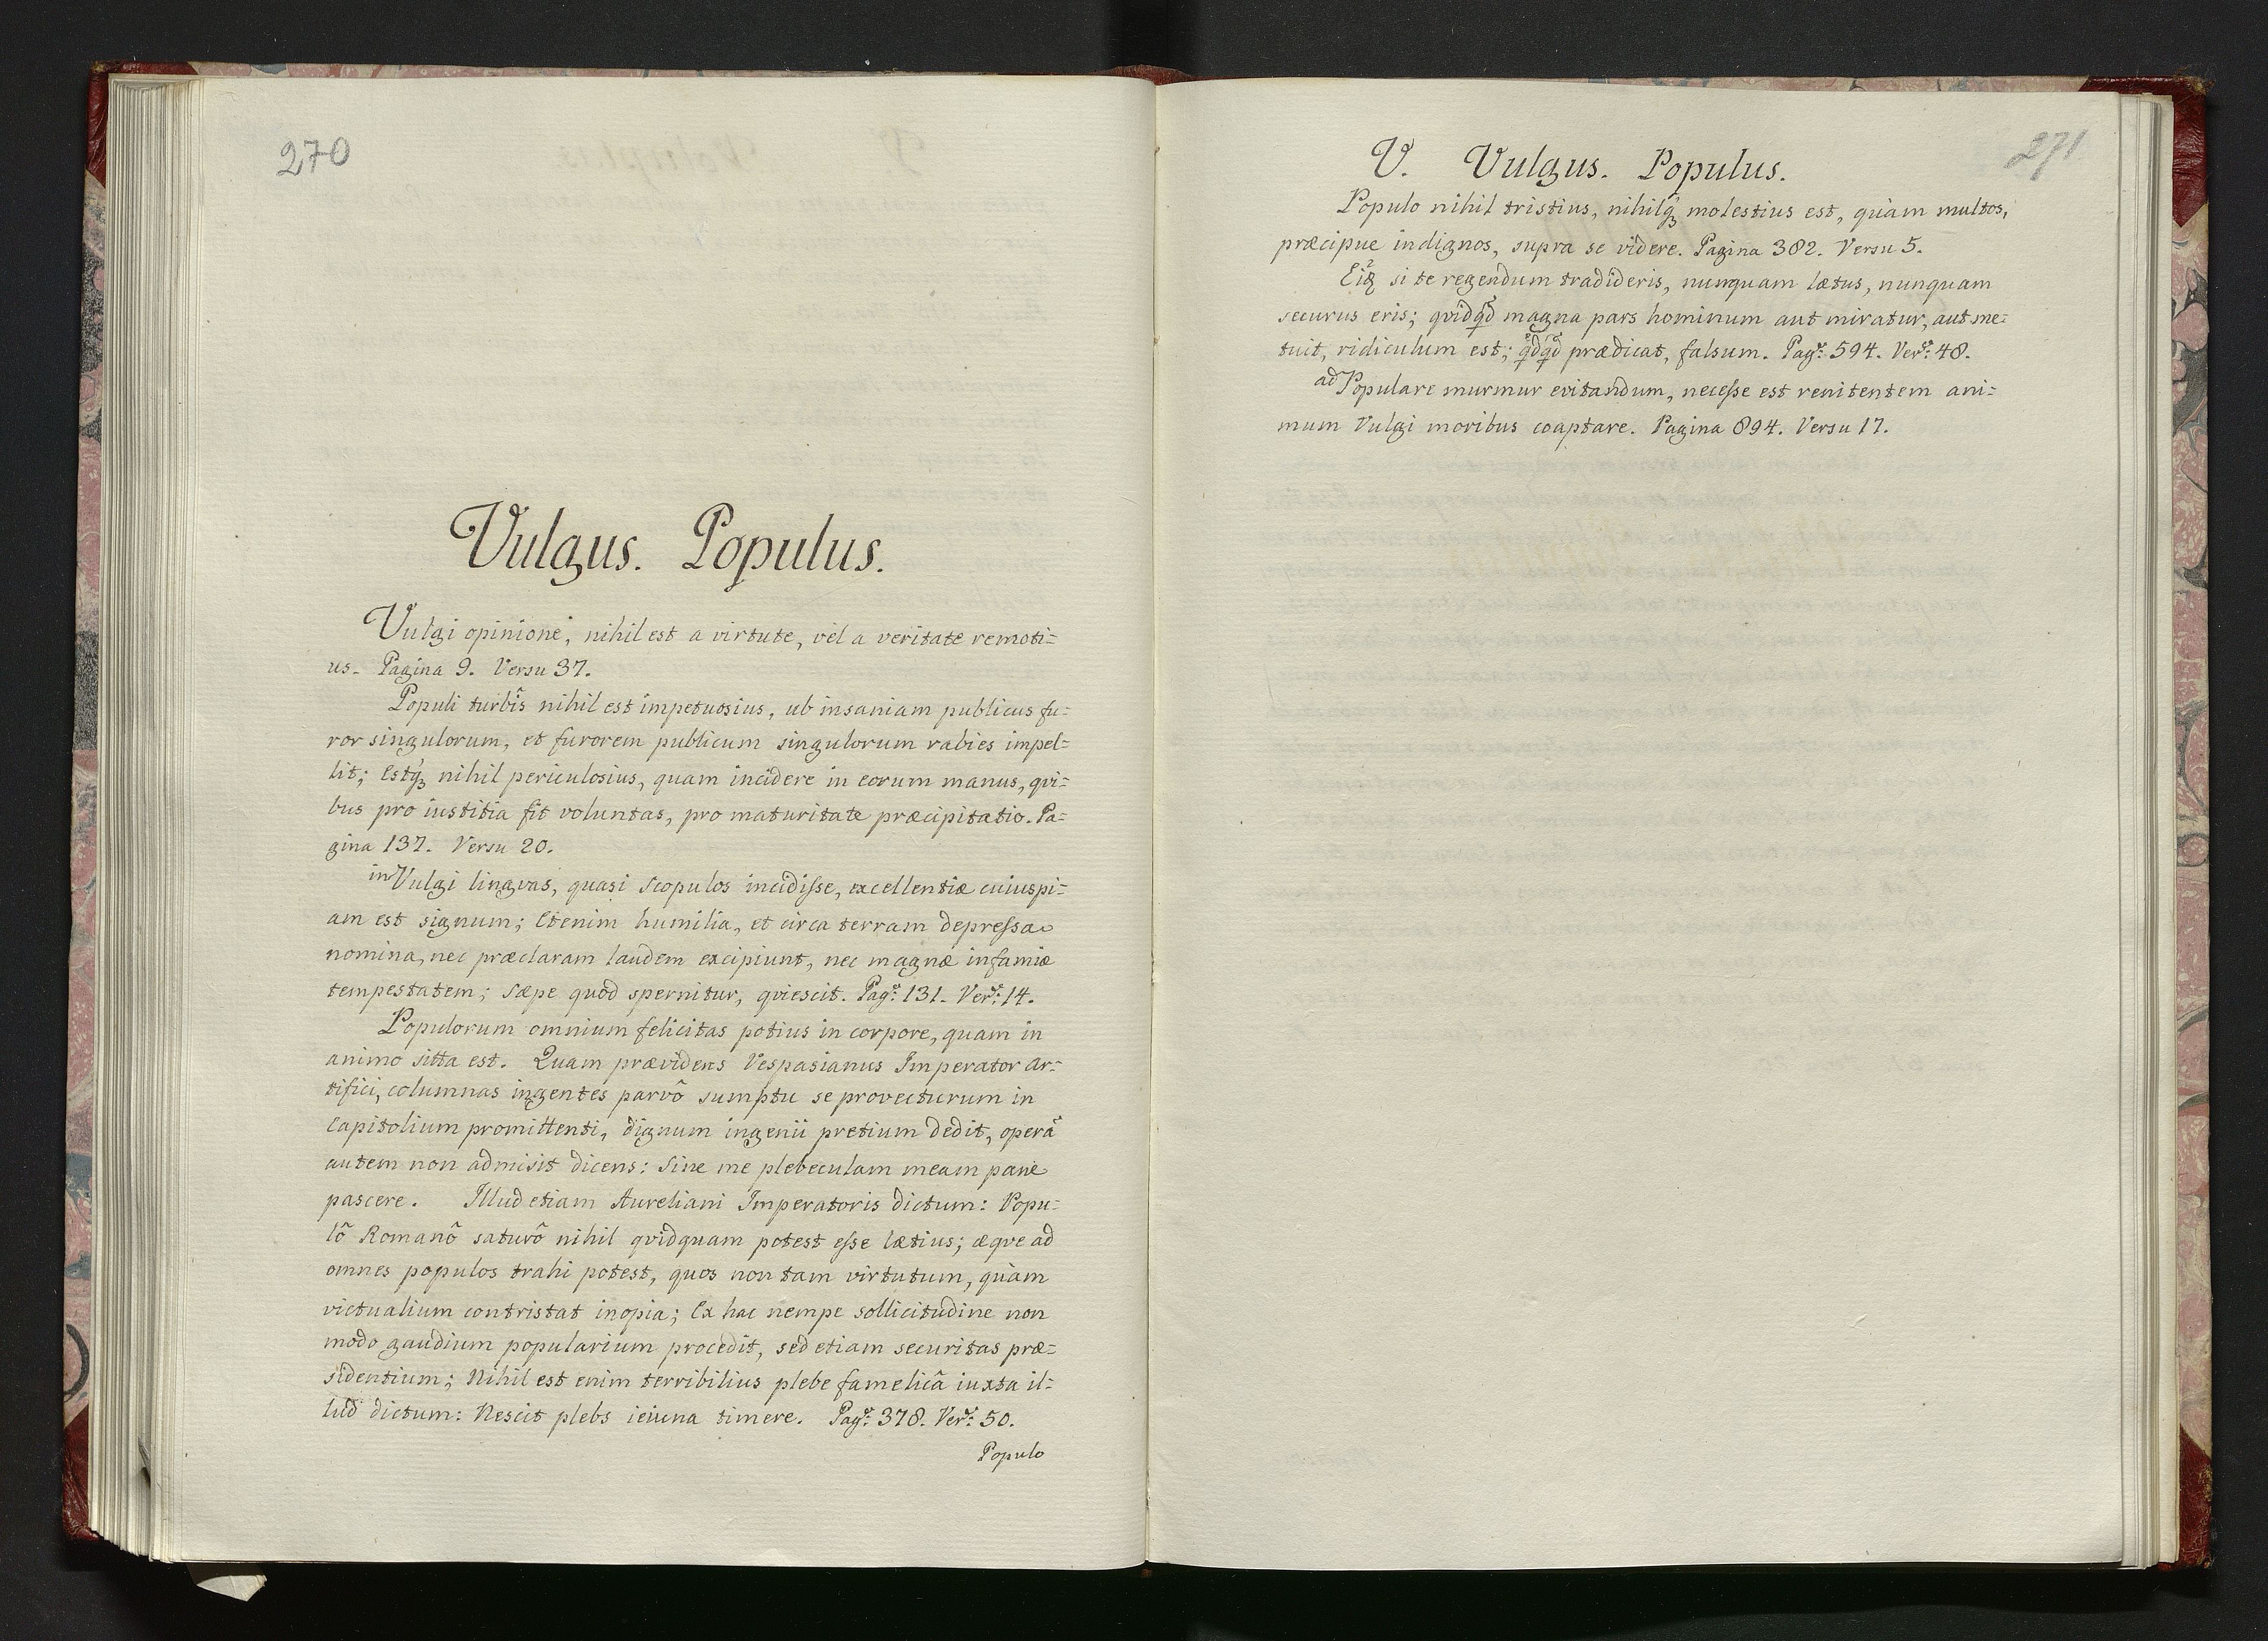 270
Vulgus. Populus.
Vulgi opinione, nihil est a virtute, vel a veritate remoti=
us. Pagina 9. Versu 37.
Populi turbîs nihil est impetuosius, ub insaniam publicus fu=
ror singulorum, et furorem publicum singulorum rabies impel=
lit; Estq́ꝫ nihil periculosius, quam incidere in eorum manus, qvi=
bus pro iustitia fit voluntas, pro maturitate præcipitatio. Pa=
gina 137. Versu 20.
in Vulgi lingvas, quasi scopulos incidiſse, excellentiæ cuiuspi=
am est signum; Etenim humilia, et circa terram depreſsa
nomina, nec præclaram laudem excipiunt, nec magnæ infamiæ
tempestatem; sæpe quod spernitur, qviescit. Pagᵃ: 131. Verˢᵘ: 14.
Populorum omnium felicitas potius in corpore, quam in
animo sitta est. Quam prævidens Vespasianus Imperator Ar=
tifici, columnas ingentes parvô sumptu se provecturum in
Capitolium promittenti, dignum ingenii pretium dedit, operã
autem non admisit dicens: Sine me plebeculam meam pane
pascere. Illud etiam Aureliani Imperatoris dictum: Popu=
lô Romanô saturô nihil qvidquam potest eſse lætius; æqve ad
omnes populos trahi potest, quos non tam virtutum, quàm
victualium contristat inopia; Ex hac nempe sollicitudine non
modo gaudium popularium procedit, sed etiam securitas præ=
sidentium; Nihil est enim terribilius plebe famelicâ iuxta il=
lud dictum: Nescit plebs ieiuna timere. Pagᵃ: 378. Verˢᵘ: 50.
Populo
271
V. Vulgus. Populus.
Populo nihil tristius, nihilq́ꝫ molestius est, quàm multos,
præcipue indignos, supra se videre. Pagina 382. Versu 5.
si te regendum tradideris, nunquam lætus, nunquam
securus eris; qvidqd magna pars hominum aut miratur, aut me=
tuit, ridiculum est; qdqd prædicat, falsum. Pagᵃ: 594. Verˢᵘ: 48.
ad Populare murmur evitandum, neceſse est renitentem ani=
mum Vulgi moribus coaptare. Pagina 894. Versu 17.